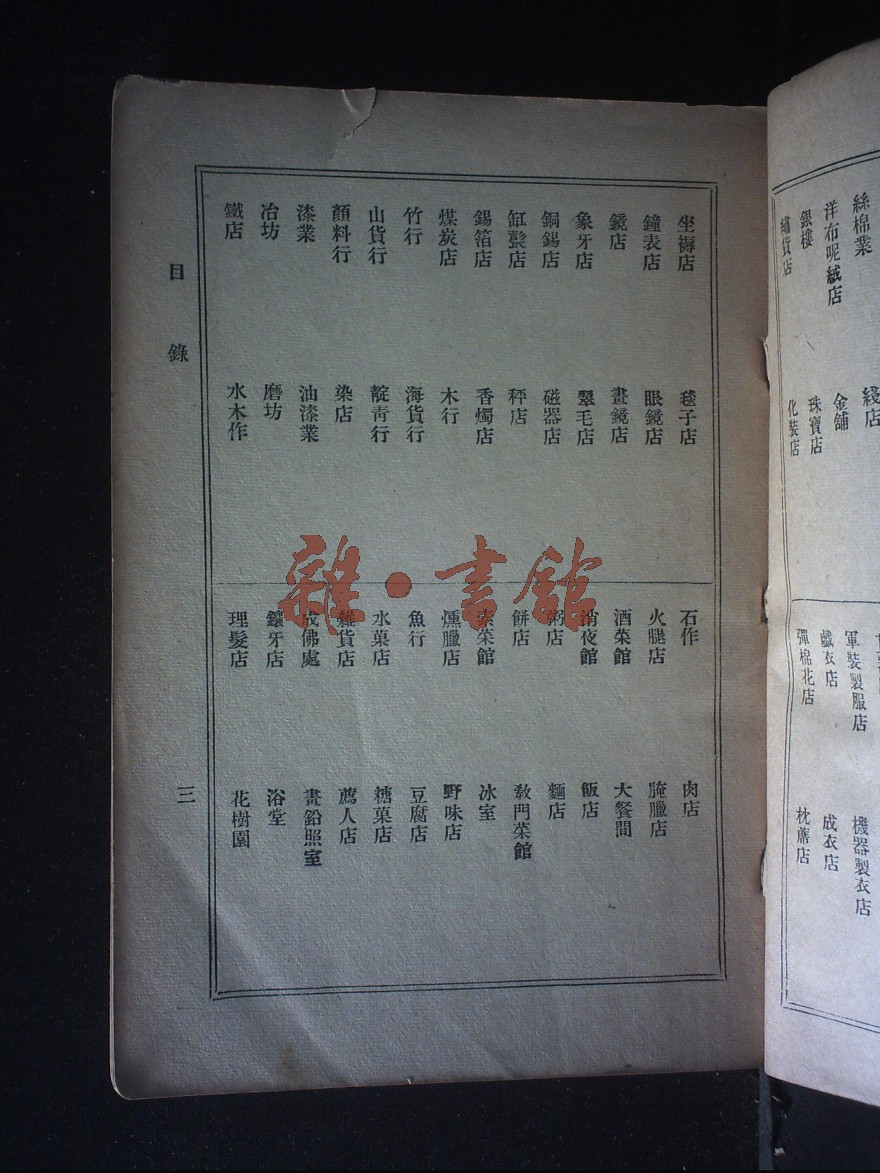 絲棉業
綫店
洋布呢絨店
金舖
銀樓
珠寶店
繡貨店
化裝店
軍裝製服店
機器製衣店
戲衣店
成衣店
彈棉花店
枕蓆店
坐褥店
毯子店
鐘表店
眼鏡店
鏡店
畫鏡店
象牙店
翠毛店
銅錫店
磁器店
缸甏店
秤店
錫箔店
香燭店
煤炭店
木行
竹行
海貨行
山貨行
靛青行
顏料行
染店
漆業
油漆業
冶坊
磨坊
鐵店
水木作
石作
肉店
火腿店
腌臘店
酒菜館
大餐間
消夜館
飯店
粥店
麵店
餅店
教門菜館
素菜館
冰室
燻臘店
野味店
魚行
豆腐店
水菓店
糖菓店
雜貨店
薦人店
成佛處
畫鉛照室
鑲牙店
浴堂
理髮店
花樹園
目錄
三
雜·書館